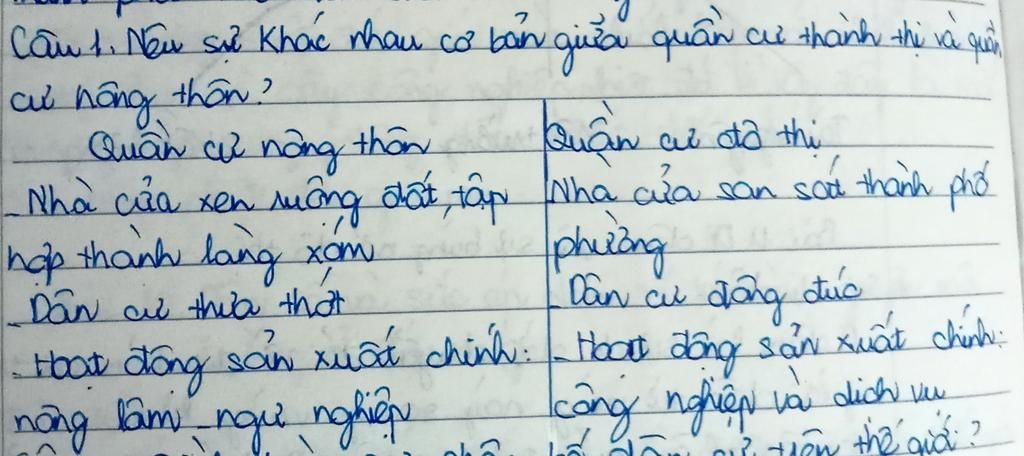 Câu 1. Nêu sự khác nhau cơ bản giữa quần cư thành thị và quần
cư nông thôn?
Quần cư nông thôn
- Nhà cửa xen ruộng đất, tập
hợp thành làng xóm
- Dân cư thưa thớt
- Hoạt động sản xuất chính:
nông lâm - ngư nghiệp
Quần cư đô thị
Nhà cửa san sát thành phố
phường
- Dân cư đông đúc
- Hoạt động sản xuất chính:
công nghiệp và dịch vụ
trên thế giới?